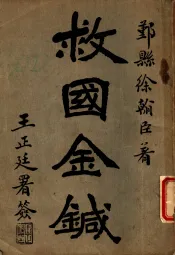 鄞縣徐翰臣著
救國金鍼
王正廷署簽